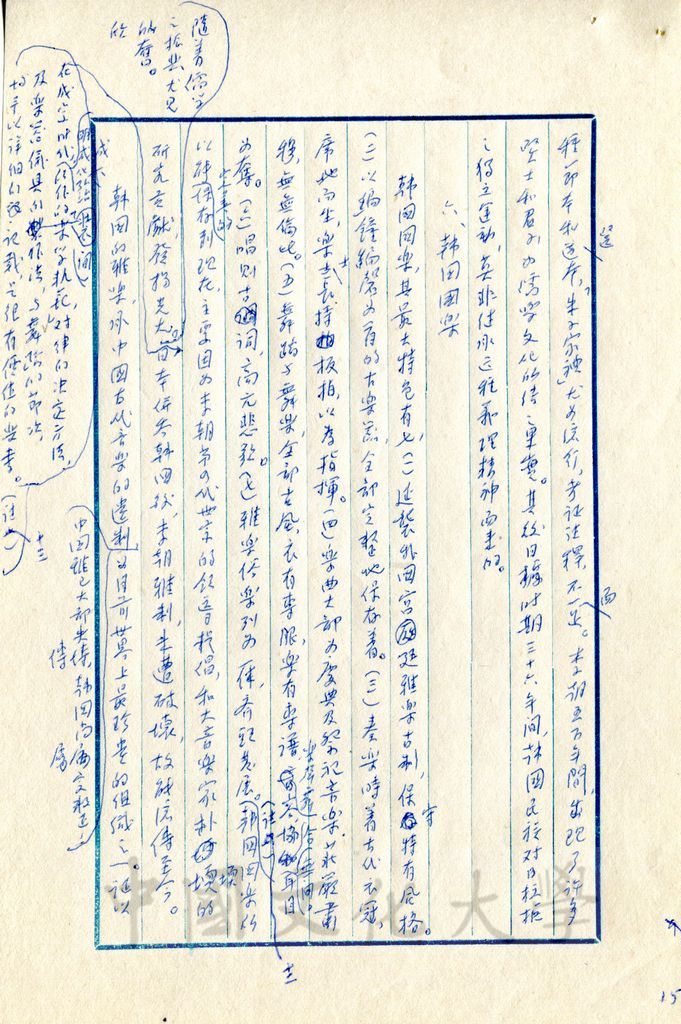 種一節本和選本，「朱子家禮」尤為流行，考證註釋，不一而足。李朝五百年間，出現了許多
賢士和君子，為儒學文化的傳
其後日據時期三十六年間，韓國民族對日抗拒
之獨立運動，莫非繼承正雅義理精神而來的。
六、韓國國樂
韓國國樂，其最大特色有七，(一)延襲外國宮廷雅樂古制，保守特有風格。
(二)以編鐘編磬為首的古樂器，全部完整地保存着。(三)奏樂時着古代衣冠，
席地而坐，樂士長持拍板拍，以為指揮。(四)樂曲大部為慶典及祭祀音樂，莊嚴肅
穆，無與倫比。(五)舞蹈與舞樂，全部古風，衣有專服，樂有專譜
耳目
為奪。(六)唱則古詞，高亢悲歌。(七)雅樂俗樂列為一体，齊頭發展。韓國國樂所
以能完善的保存到現在，主要因為李朝第四代世宗的
提倡，和大音樂家朴堧的
研究貢獻發揚光大。日本併吞韓國後，李朝雅制，未遭破壞，故能流傳至今。
韓國的雅樂，承中國古代音樂的遺制，為目前世界上最珍貴的組織之一，証以
中國雅已大部失傳，韓國尚屬
隨着儒學
之振興尤見
的奮。
在成宗時代
的樂學軌範，對律的決定方法，
及樂器儀具的製作法與舞蹈的節次
均予以詳細的
記載，是很有價值的樂書。(註十三)
十二
15
中國文化大學